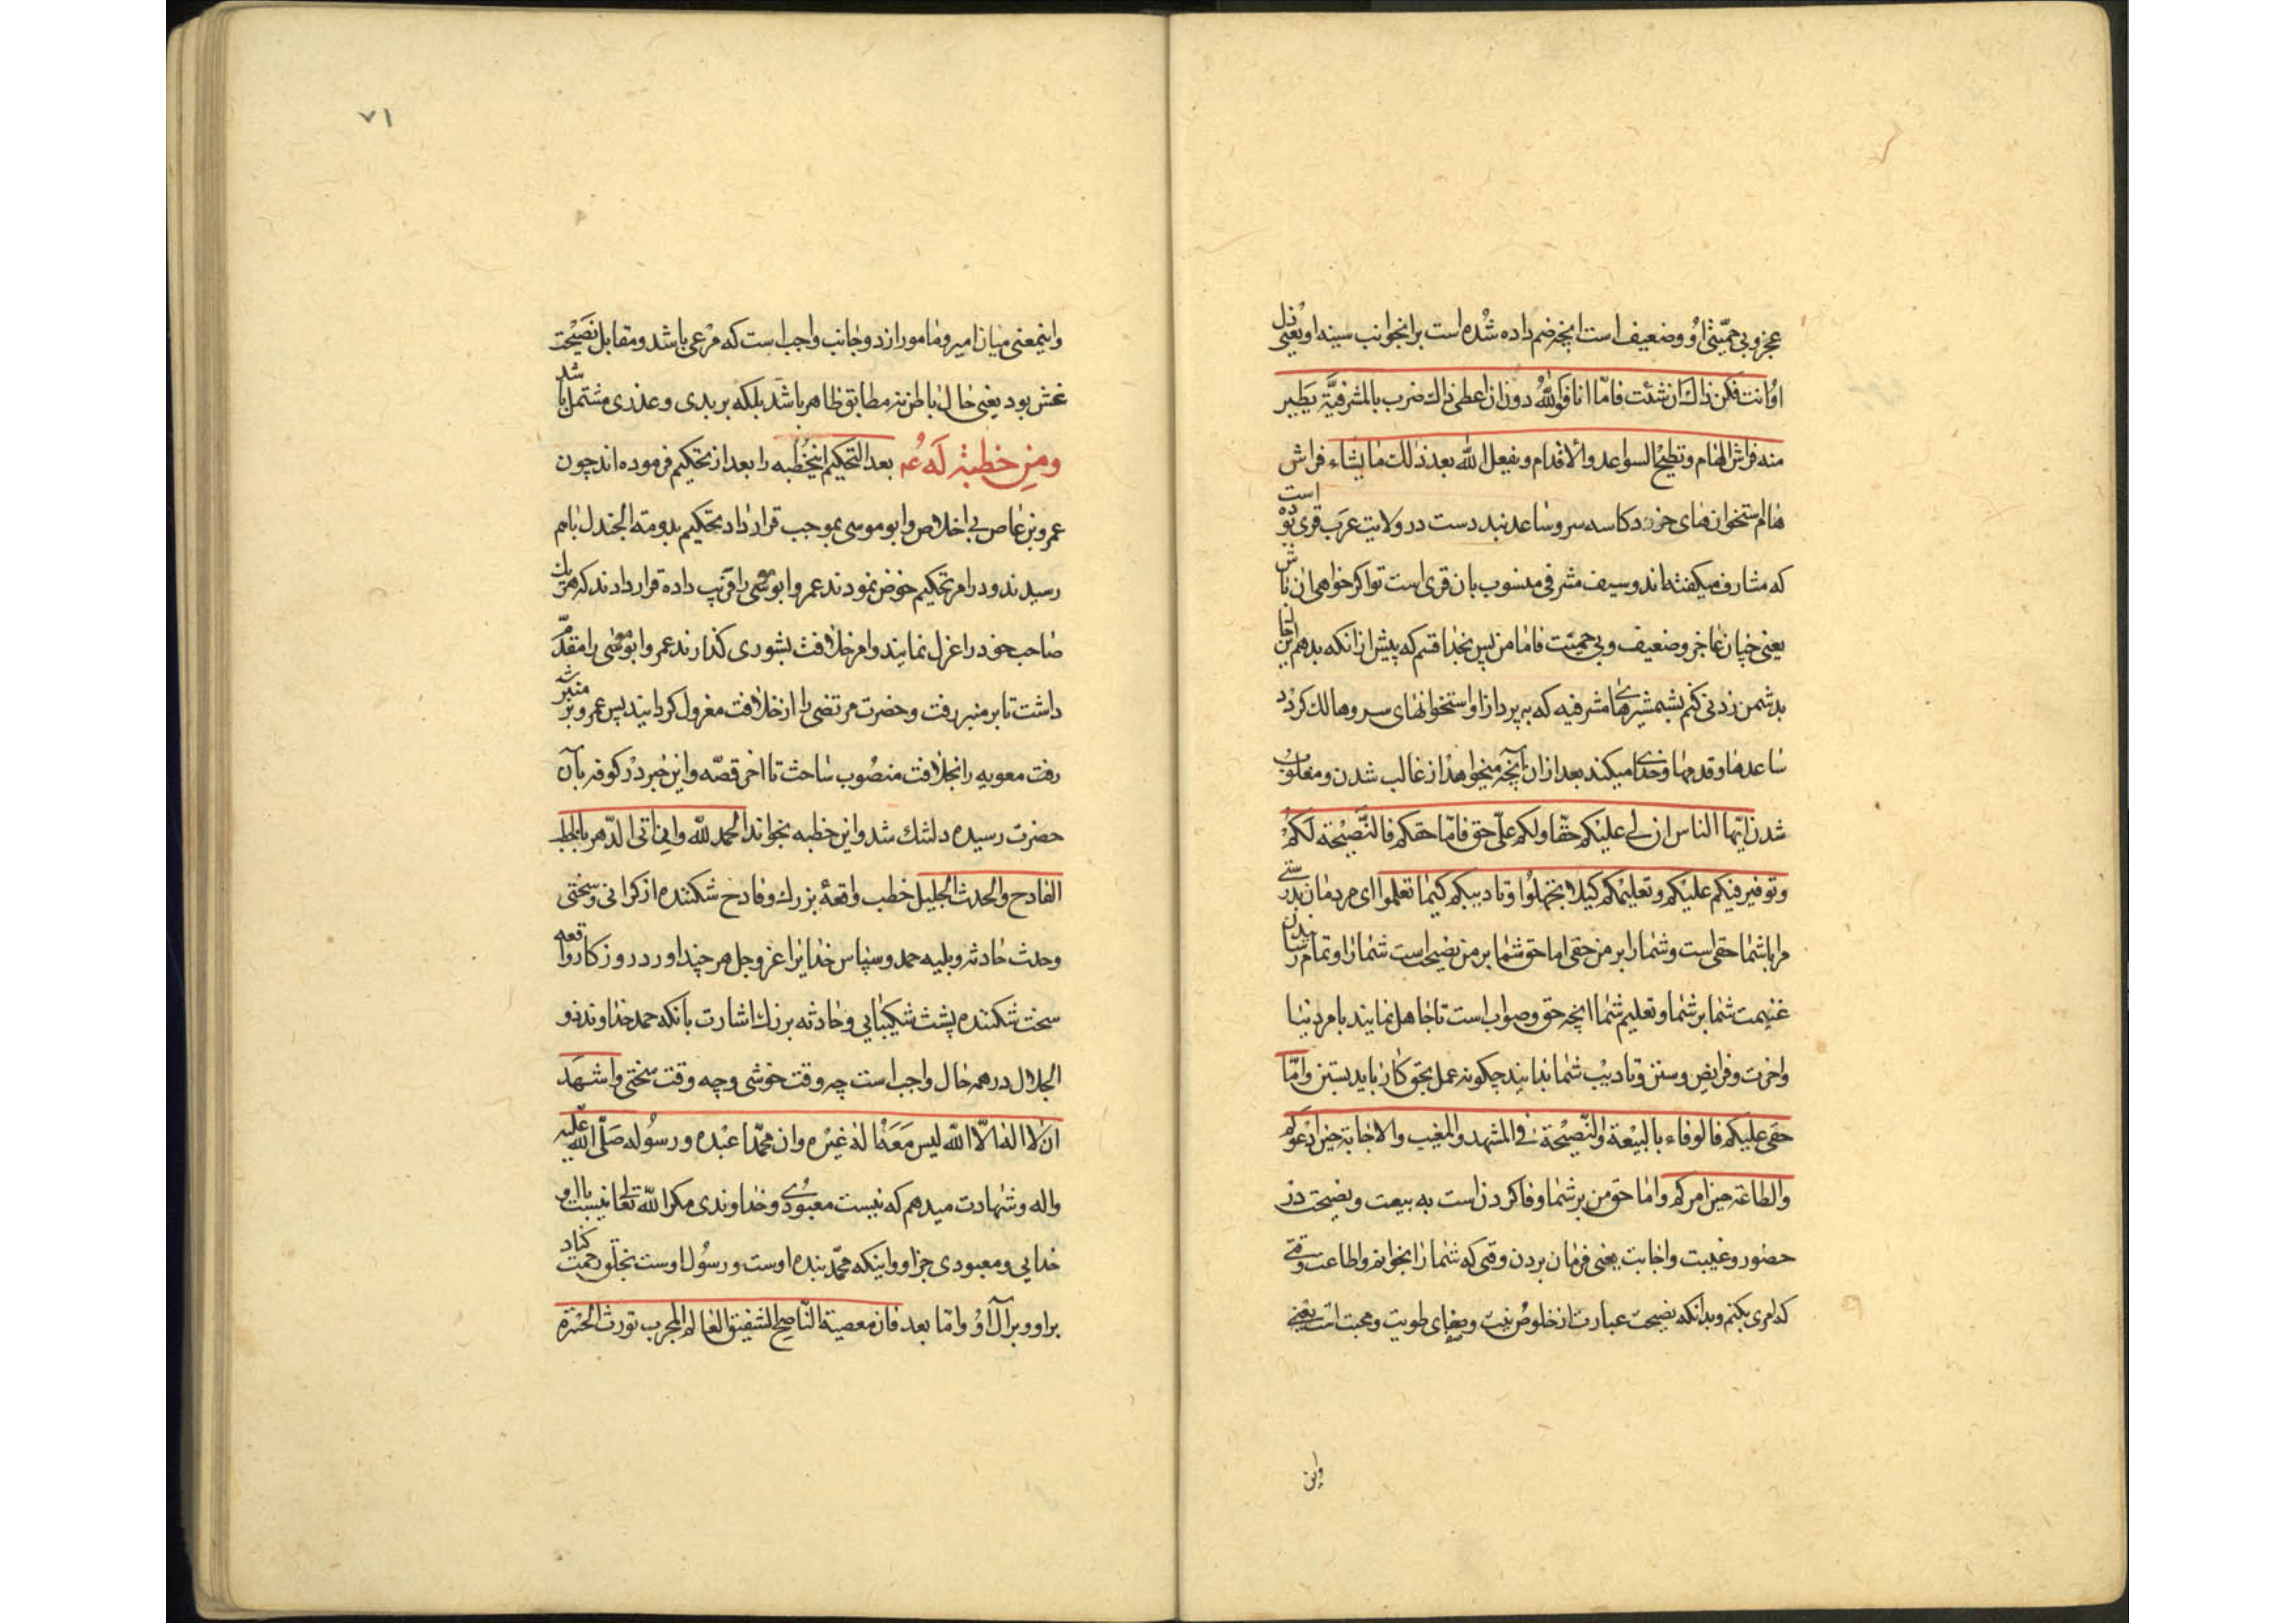 عجز و بی حمیّتی او و ضعیف است انچه ضم داده شده است بر انجوانب سینه او یعنی دل
او انت فکن ذاك ان شئت فامّا انا فوالله دون ان اعطی ذالك ضرب بالمشرفیّة یطیر
منه فراش الهام و تطیح السواعد و الاقدام و یفعل الله بعد ذلك ما یشاء فراش
هام استخوان های خورد کاسه سر و ساعد بند دست در ولایت عرب قری بوده است
که مشارف میکفته اند و سیف مشرفی منسوب بان قری است تو اکر خواهی ان باش
یعنی چنان عاجز و ضعیف و بی حمیّت فاما من پس بخدا قسم که پیش از انکه بدهم این
بدشمن زدنی کنم بشمشیرهای مشرفیه که بپرد از او استخوانهای سر و هالك کردد
ساعدها و قدمها و خدای میکند بعد از ان آنچه میخواهد از غالب شدن و مغلوب
شدن ایّها الناس ان لی علیکم حقّا و لکم علیّ حق فامّا حقکم فالنّصیحة لکم
و توفیر فیئکم علیکم و تعلیمکم کیلا تجهلوا و تادیبکم کیما تعلموا ای مردمان بدرستی
مرا با شما حقی است و شما را بر من حقی اما حق شما بر من نصیحت است شما را و تمام رسانیدن
غنیمت شما بر شما و تعلیم شما انچه حق و صواب است تا جاهل نمانید بامر دنیا
و اخرت و فرایض و سنن و تادیب شما تا بدانید چکونه عمل بحق کار باید بستن و امّا
حقی علیکم فالوفاء بالبیعة و النّصیحة فی المشهد و المغیب و الاجابة حین ادعوکم
و الطاعة حین امرکم و اما حق من بر شما وفا کردن است به بیعت و نصیحت در
حضور و غیبت و اجابت یعنی فرمان بردن وقتی که شما را بخوانم و اطاعت وقتی
که امری بکنم و بدانکه نصیحت عبارت از خلوص نیت و صفای طویت و محبت است یعنی
واین
۷۱
و اینمعنی میان امیر و مامور از دو جانب واجب است که مرعی باشد و مقابل نصیحت
غش بود یعنی حال باطن نه مطابق ظاهر باشد بلکه بر بدی و عذری مشتمل باشد
و من خطبة له عم بعد التحکیم اینخطبه را بعد از تحکیم فرموده اند چون
عمرو بن عاص بی اخلاص و ابو موسی بموجب قرار داد تحکیم بدومة الجندل باهم
رسیدند و در امر تحکیم خوض نمودند عمرو ابو موسی را فریب داده قرار دادند که هریك
صاحب خود را عزل نمایند و امر خلافت بشوری کذارند عمرو ابو موسی را مقدّم
داشت تا بر منبر رفت و حضرت مرتضی را از خلافت معزول کردانید پس عمرو بر منبر
رفت معویه را بخلافت منصوب ساخت تا اخر قصّه و این خبر در کوفه بآن
حضرت رسیده دلتنك شد و این خطبه بخواند الحمد لله و ان اتی الدّهر بالخطب
الفادح و الحدث الجلیل خطب واقعهٔ بزرك و فادح شکننده از کرانی و سختی
و حدث حادثه و بلیه حمد و سپاس خدایرا عز و جل هر چند اورد روزکار واقعه
سخت شکننده پشت شکیبایی و حادثه بزرك اشارت بانکه حمد خداوند ذو
الجلال در همه حال واجب است چه وقت خوشی و چه وقت سختی و اشهد
ان لا اله الّا الله لیس معه اله غیره و ان محمّدا عبده و رسوله صلّی الله علیه
و اله و شهادت میدهم که نیست معبودی و خداوندی مکر الله تعالی نیست با او
خدایی و معبودی جز او و اینکه محمّد بنده اوست و رسول اوست بخلق رحمت کناد
بر او و بر آل او و امّا بعد فان معصیة النّاصح الشفیق العالم المجرب تورث الحسرة